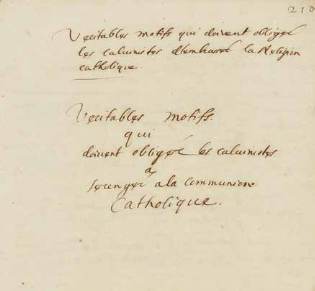 210
Veritables motifs qui doivent obligér
les caluinistes d'embrasser la Religion
catholique.
Veritables motifs
qui
doivent obligér les caluinistes
a
se renger a la Communion
Catholique.